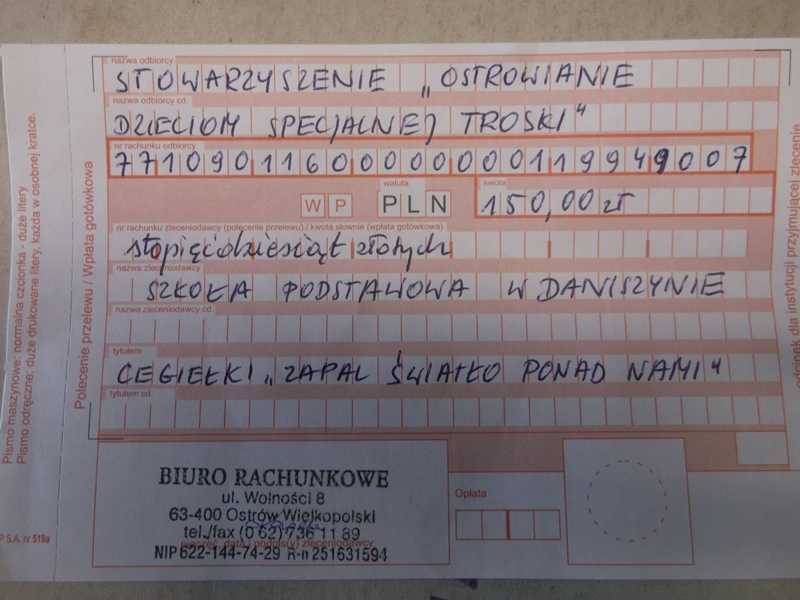 nazwa odbiorcy
STOWARZYSZENIE „OSTROWIANIE
nazwa odbiorcy cd.
DZIECIOM SPECJALNEJ TROSKI"
nr rachunku odbiorcy
77109011600000000119949007
waluta
kwota
WP PLN 150,00 zł
nr rachunku zleceniodawcy (polecenie przelewu) / kwota słownie (wpłata gotówkowa)
stopięćdziesiąt złotych
nazwa zleceniodawcy
SZKOŁA PODSTAWOWA W DANISZYNIE
nazwa zleceniodawcy cd.
tytułem
CEGIEŁKI „ZAPAL ŚWIATŁO PONAD NAMI"
tytułem cd.
BIURO RACHUNKOWE
ul. Wolności 8
63-400 Ostrów Wielkopolski
tel./fax (0 62) 736 11 89
pieczęć, data i podpis(y) zleceniodawcy
NIP 622-144-74-29 R-n 251631594
Opłata
Polecenie przelewu / Wpłata gotówkowa
Pismo maszynowe: normalna czcionka - duże litery
Pismo odręczne: duże drukowane litery, każda w osobnej kratce.
P S.A. nr 519a
odcinek dla instytucji przyjmującej zlecenie